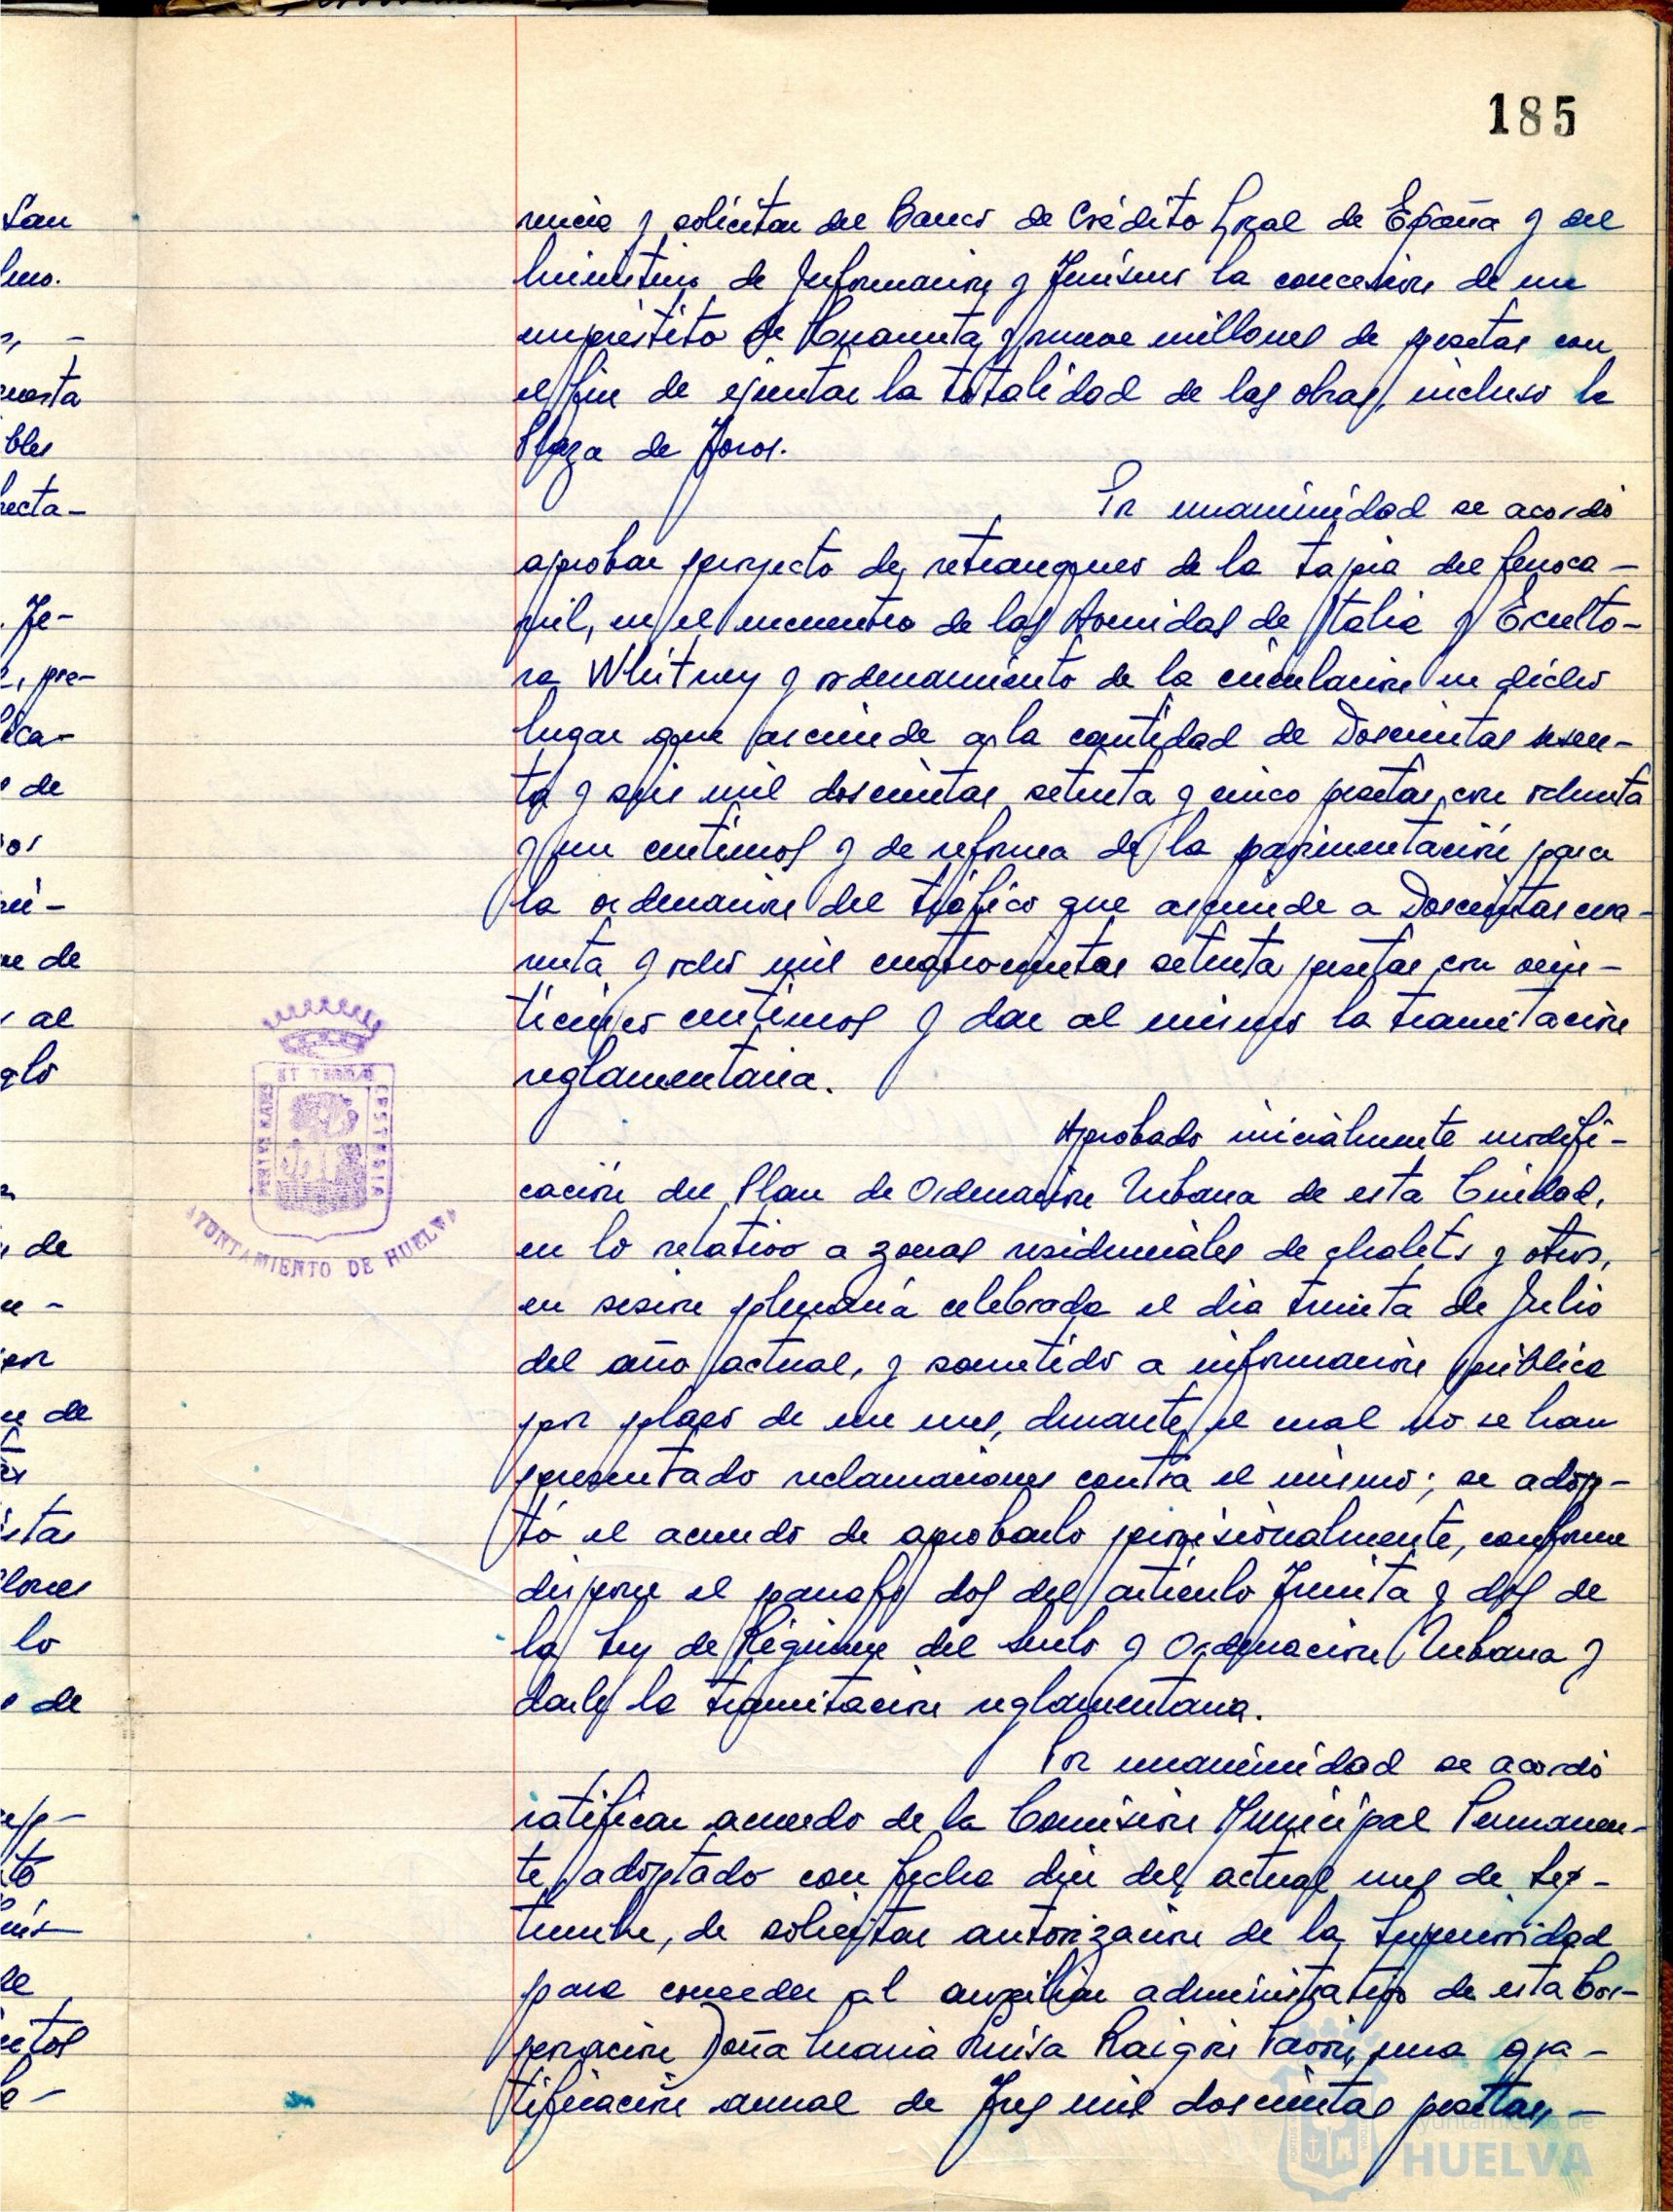 185
rencia y solicitar del Banco de Crédito Local de España y del
Ministerio de Información y Turismo la concesión de un
empréstito de Cuarenta y nueve millones de pesetas con
el fin de ejecutar la totalidad de las obras, incluso la
Plaza de Toros.
Por unanimidad se acordó
aprobar proyecto de retranqueo de la tapia del ferroca-
rril, en el encuentro de las Avenidas de Italia y Esculto-
ra Whitney y ordenamiento de la circulación en dicho
lugar que asciende a la cantidad de Doscientas sesen-
ta y seis mil doscientas setenta y cinco pesetas con ochenta
y un centimos y de reforma de la pavimentación para
la ordenación del tráfico que asciende a Doscientas cua-
renta y ocho mil cuatrocientas setenta pesetas con vein-
ticinco centimos y dar al mismo la tramitación
reglamentaria.
Aprobado inicialmente modifi-
cación del Plan de Ordenación Urbana de esta Ciudad,
en lo relativo a zonas residenciales de chalets y otros,
en sesión plenaria celebrada el día treinta de Julio
del año actual, y sometido a información pública
por plazo de un mes, durante el cual no se han
presentado reclamaciones contra el mismo; se adop-
tó el acuerdo de aprobarlo provisionalmente, conforme
dispone el parrafo dos del artículo Treinta y dos de
la Ley de Régimen del Suelo y Ordenación Urbana y
darle la tramitación reglamentaria.
Por unanimidad se acordó
ratificar acuerdo de la Comisión Municipal Permanen-
te adoptado con fecha diez del actual mes de Sep-
tiembre, de solicitar autorización de la Superioridad
para conceder al auxiliar administrativo de esta Cor-
poración Doña Maria Luisa Raigón Pavón, una gra-
tificación anual de Tres mil doscientas pesetas,-
AYUNTAMIENTO DE HUELVA
Ayuntamiento de
HUELVA